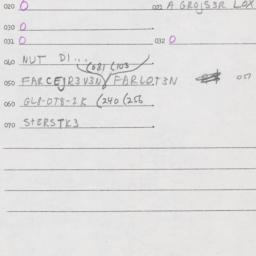 020 0 021 A GROJS3R LOX
030 0
031 0 032 0
040 NUT DI...
(081 (103
050 FARCEJR3V3N FARLOT3N 051
060 GL8-DT8-1K (240 (256
070 STERSTK3